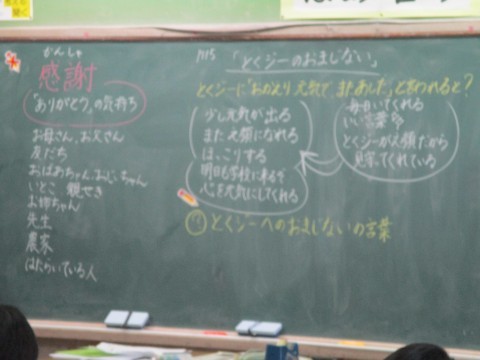 かんしゃ
感謝
「ありがとう」の気持ち
お母さん、お父さん
友だち
おばあちゃん、おじいちゃん
いとこ 親せき
お姉ちゃん
先生
農家
はたらいている人
「とくジーのおまじない」
とくジーに“おかえり 元気で、またあした”と言われると?
少し元気が出る
また笑顔になれる
ほっこりする
明日も学校に来るぞ
心を元気にしてくれる
毎日いてくれる
いい言葉
とくジーが笑顔だから
見守ってくれている
とくジーへのおまじないの言葉